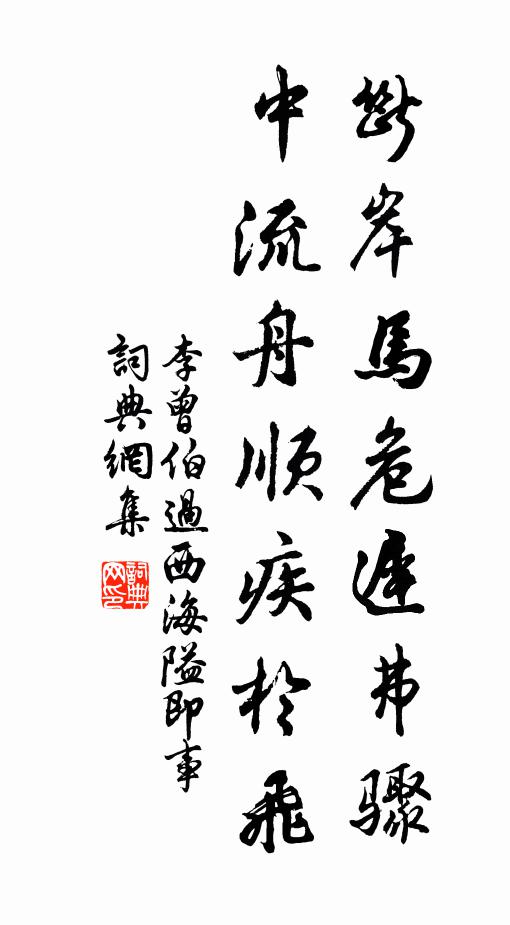 斷岸馬危遲弗驟
中流舟順疾於飛
李曾伯過西海隘即事
詞典網集
詞典网印